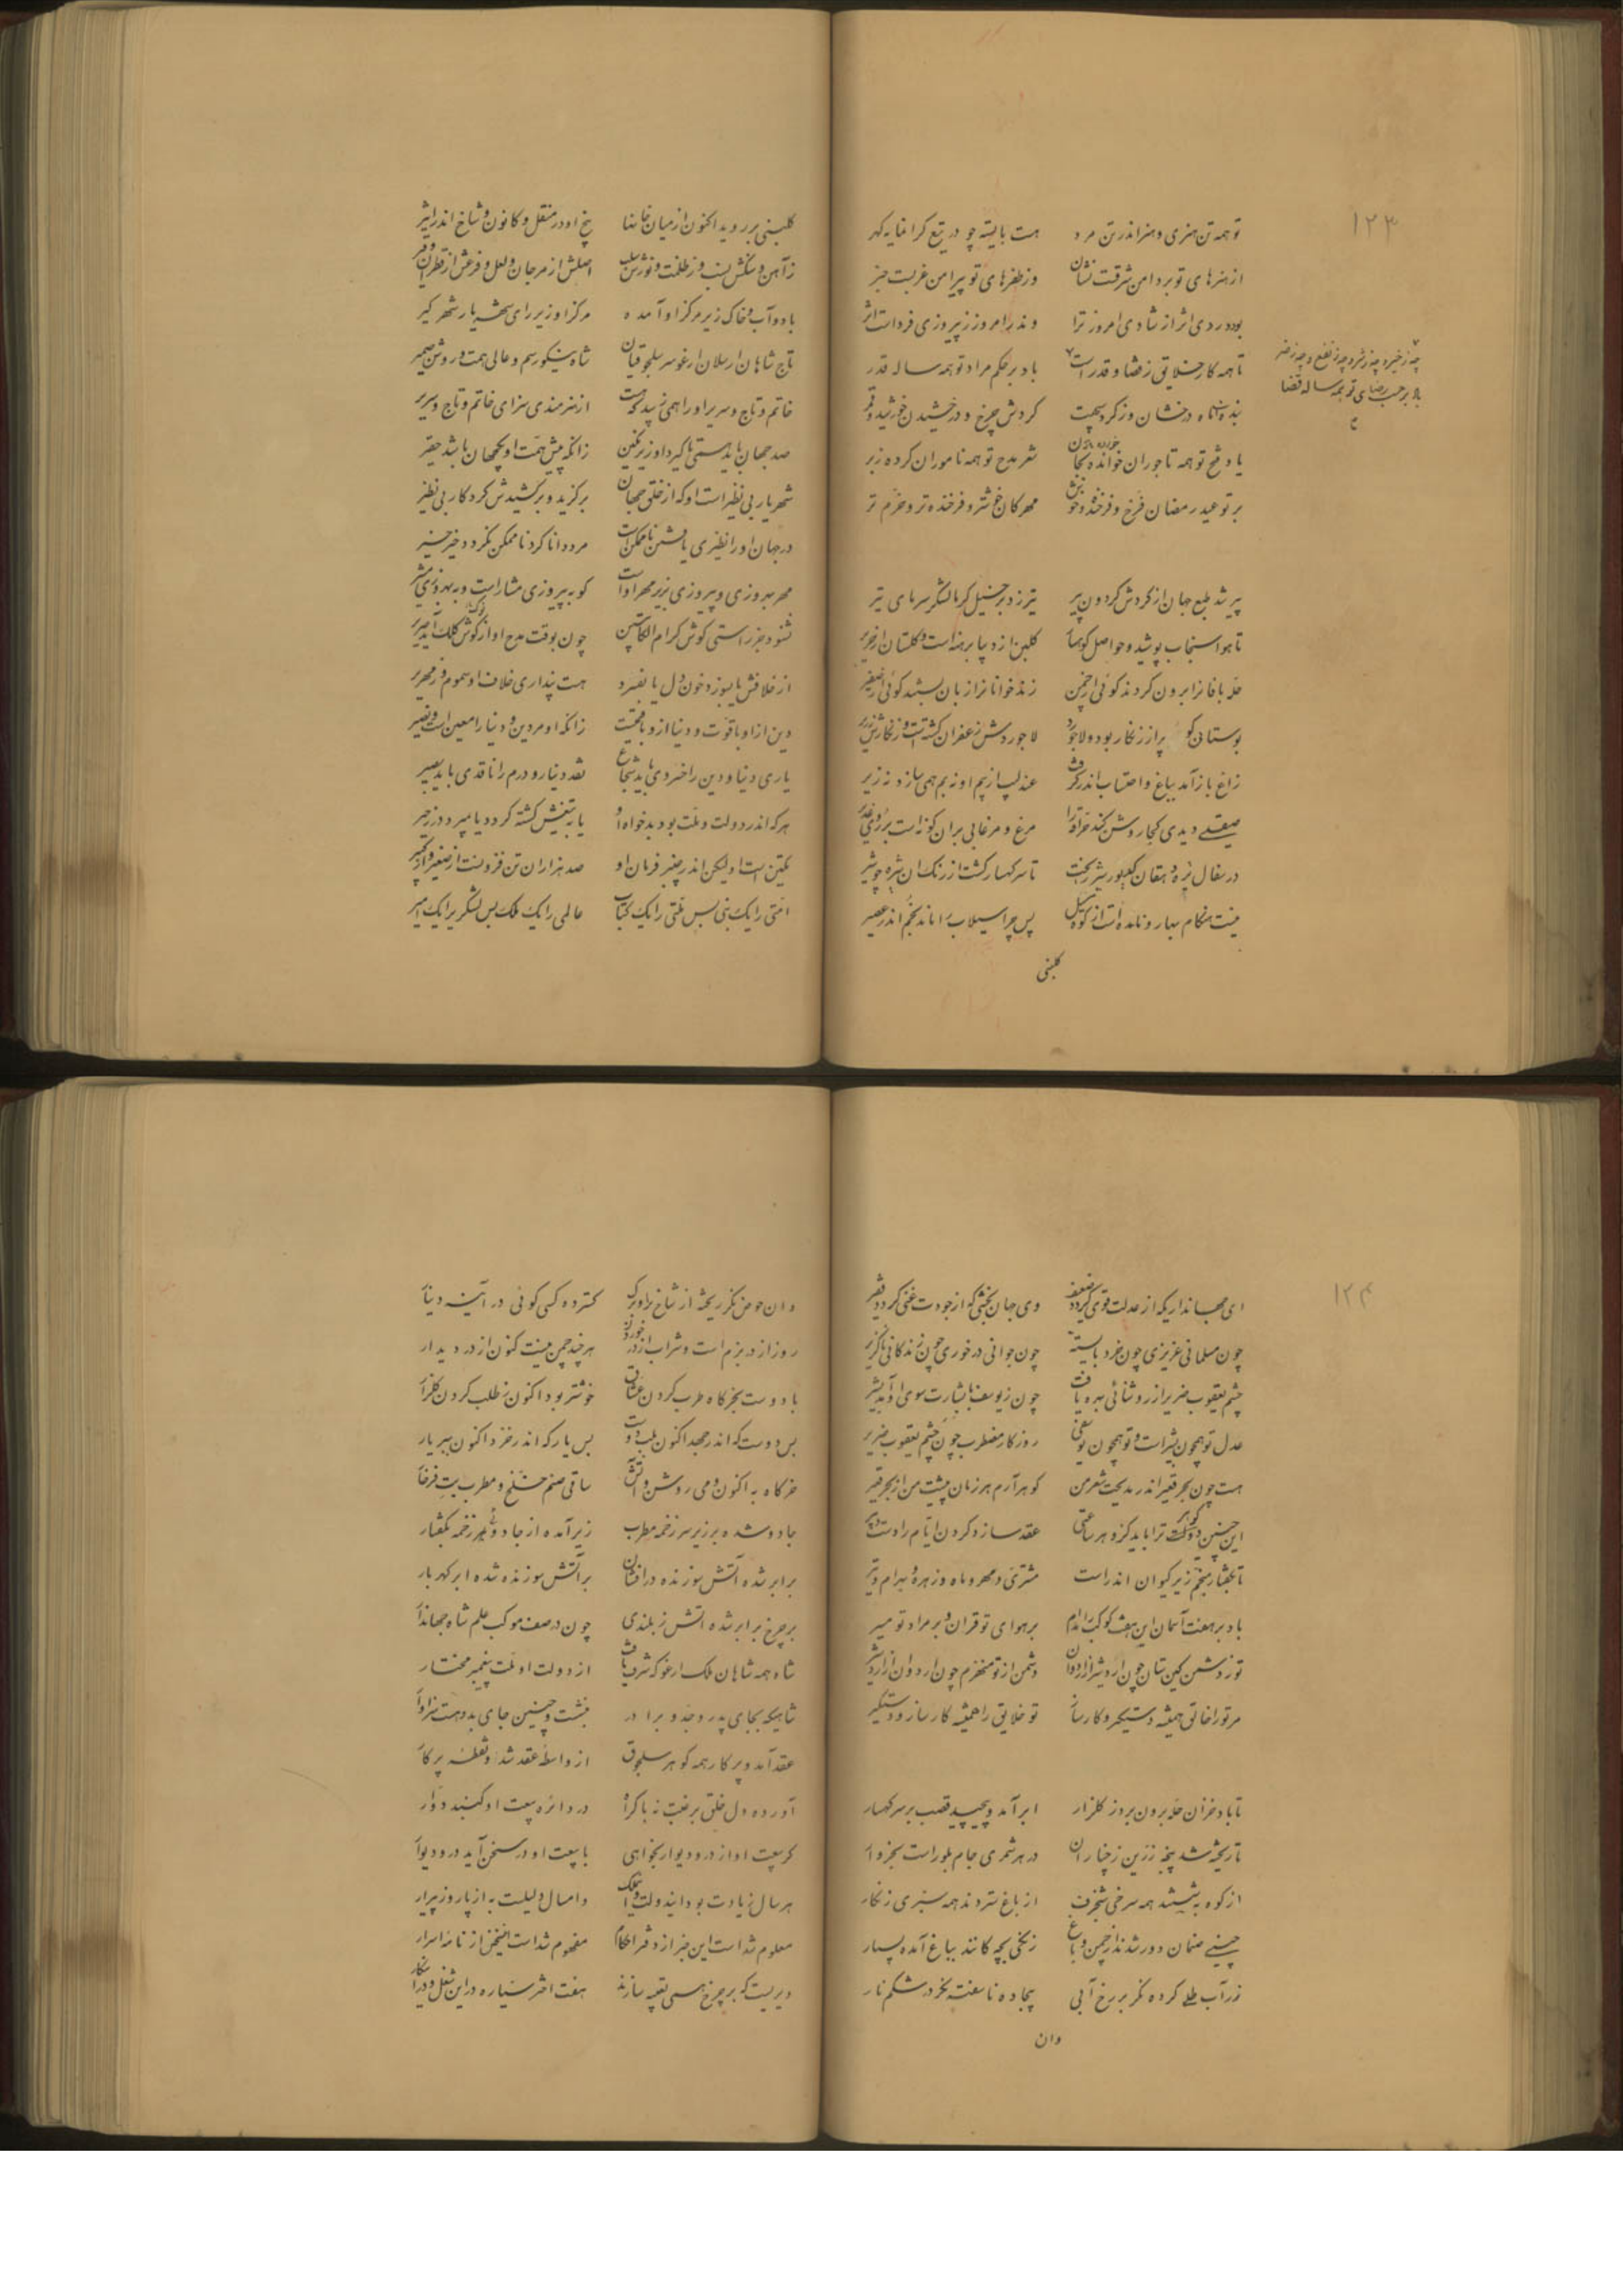 ۱۲۳
تو همه تن هنری و هنر اندر تن مرد هست بایسته چو در تیغ گرانمایه گهر
از هنرهای تو بر دامن شرقت نشان وز ظفرهای تو پیرامن غربست خبر
بود دی اثر از شادی امروز ترا امروز ز پیروزی فردات اثر
تا همه کار خلایق ز قضا و قدر است باد بر حکم مراد تو همه ساله قدر
چه ز خیر و چه ز شر و چه ز نفع و چه ز ضر
باد بر حسب رضای تو همه ساله قضا
گردش چرخ و درخشیدن خورشید و قمر
فتح تو همه تاجوران خوانده شعر مدح تو همه ناموران کرده زبر
بر تو عید رمضان فرخ و فرخنده و خوش مهرکان خوشتر و فرخنده تر و خرم تر
پیر شد طبع جهان از گردش گردون پیر تیر زد بر خیل گرما لشکر سرمای تیر
تا هوا سنجاب پوشید و حواصل کوهسار گلبن از دیبا برهنه است و گلستان از حریر
حله بافانرا برون کردند گوئی از چمن زندخوانانرا زبان بستند گوئی از صفیر
بوستانی کو پر از زنگار بود و لاجورد لاجوردش زعفران گشته است و زنگارش زریر
زاغ باز آمد بباغ و احتساب اندر گرفت عندلیب از بیم او نه بم همی سازد نه زیر
صیقلی دیدی کجا روشن کند مرغ و مرغابی بران گونه است بر روی غدیر
در سفال تیره دهقان ریخت تا سر کهسار گشت از رنگ آن تیره چو شیر
نیست هنگام بهار و نامده است از کوه سیل پس چرا سیلاب اندر عصیر
گلبنی
گلبنی بر روید اکنون از میان خانها بیخ او در منقل و کانون و شاخ اندر اثیر
ز آهن و سنگش نسب وز ظلمت و نورش سلب اصلش از مرجان و لعل و فرعش از قطران و قیر
باد و آب و خاک زیر مرکز او آمده مرکز او زیر رای شهریار شهرگیر
تاج شاهان ارسلان ارغو سر سلجوقیان شاه نیکو رسم و عالی همت و روشن ضمیر
خاتم و تاج و سریر او را همی زیبد کجاست از هنرمندی سزای خاتم و تاج و سریر
صد جهان بایستی تا گیرد او زیر نگین زانکه پیش همت او یکجهان باشد حقیر
شهریار بی نظیر است او که از خلق جهان برگزید و برکشیدش کردگار بی نظیر
در جهان او را نظیری یافتن ناممکن است مرد دانا گرد ناممکن نگردد خیر خیر
مهر بهروزی و پیروزی بزیر مهر اوست کو به پیروزی مشار است و به بهروزی مشیر
نشنود جز راستی گوش کرام الکاتبین چون بوقت مدح او از گوش کلک آید صریر
از خلافش یا بسوزد خون دل یا بفسرد هست پنداری خلاف او سموم و زمهریر
دین از او با قوت و دنیا ازو با قیمت زانکه او مر دین و دنیا را معین است و نصیر
یاری دنیا و دین را خسروی باید شجاع نقد دینار و درم را ناقدی باید بصیر
هر که اندر دولت و ملت بود بدخواه او یا به تیغش کشته گردد یا بمیرد در زحیر
یکتن است او لیکن اندر چنبر فرمان او صد هزاران تن فزونست از صغیر و از کبیر
امتی را یک نبی بس ملتی را یک کتاب عالمی را یک ملک بس لشکری را یک امیر
۱۲۴
ای جهانداریکه از عدلت قوی گردد ضعیف وی جهان بخشی که از جودت غنی گردد فقیر
چون مسلمانی عزیزی چون خرد بایسته چون جوانی در خوری چون زندگانی ناگزیر
چشم یعقوب ضریر از روشنائی بهره یافت چون ز یوسف با بشارت سوی او آمد بشیر
عدل تو همچون بشیر است و تو همچون یوسفی روزگار مضطرب چون چشم یعقوب ضریر
هست چون بحر قعیر اندر مدیحت شعر من گوهر آرم هر زمان پیشت من از بحر قعیر
این چنین گوهر ترا باید کزو هر ساعتی عقد سازد گردن ایام را دست دبیر
تا بگفتار منجم زیر کیوان اندر است مشتری و مهر و ماه و زهره و بهرام و تیر
باد بر هفت آسمان این هفت کوکب را مدام بر هوای تو قران و بر مراد تو مسیر
تو ز دشمن کین ستان چون اردشیر از اردوان دشمن از تو منهزم چون اردوان از اردشیر
مر ترا خالق همیشه دستگیر و کارساز تو خلایق را همیشه کارساز و دستگیر
تا باد خزان حله برون برد ز گلزار ابر آمد و پیچید قصب بر سر کهسار
تا ریخته شد پنجه زرین ز چناران در هر شمری جام بلور است بخروار
از کوه بشستند همه سرخی شنگرف از باغ ستردند همه سبزی زنگار
چینی صنمان دور شدند از چمن و باغ زنگی بچه کانند بباغ آمده بسیار
زر آب طلی کرده نگر بر رخ آبی بیجاده ناسفته نگر در شکم نار
وان
وان حوض نگر ریخته از شاخ برو برگ گسترده کسی گوئی در آینه دینار
روز از در بزم است و شراب از در خوردن هر چند چمن نیست کنون از در دیدار
با دوست بخرگاه طرب کردن عشاق خوشتر بود اکنون ز طلب کردن گلزار
بس دوست که اندر جهد اکنون بلب دوست بس یار که اندر خزد اکنون ببر یار
خرگاه به اکنون و می روشن و آتش ساقی صنم خلخ و مطرب بت فرخار
جادو شده بر زیر سر زخمه مطرب زیر آمده از جادوئی زخمه بگفتار
برابر شده آتش سوزنده درافشان بر آتش سوزنده شده ابر گهربار
بر چرخ برابر شده آتش ز بلندی چون در صف موکب علم شاه جهاندار
شاه همه شاهان ملک ارغو که شرف یافت از دولت او ملت پیغمبر مختار
شاهیکه بجای پدر و جد و برادر بنشست و چنین جای بدو هست سزاوار
عقد آمد و پرگار همه گوهر سلجوق از واسطه عقد شد و نقطه پرگار
آورده دل خلق برغبت نه باکراه در دائره بیعت او گنبد دوار
گر بیعت او از در و دیوار بخواهی با بیعت او در سخن آید در و دیوار
هر سال زیادت بود امسال دلیلست به از پار و ز پیرار
معلوم شده است این خبر از دفتر احکام مفهوم شده است این سخن از نامه اسرار
دیریست که بر چرخ همی تعبیه سازند هفت اختر سیاره در این شغل و در این کار